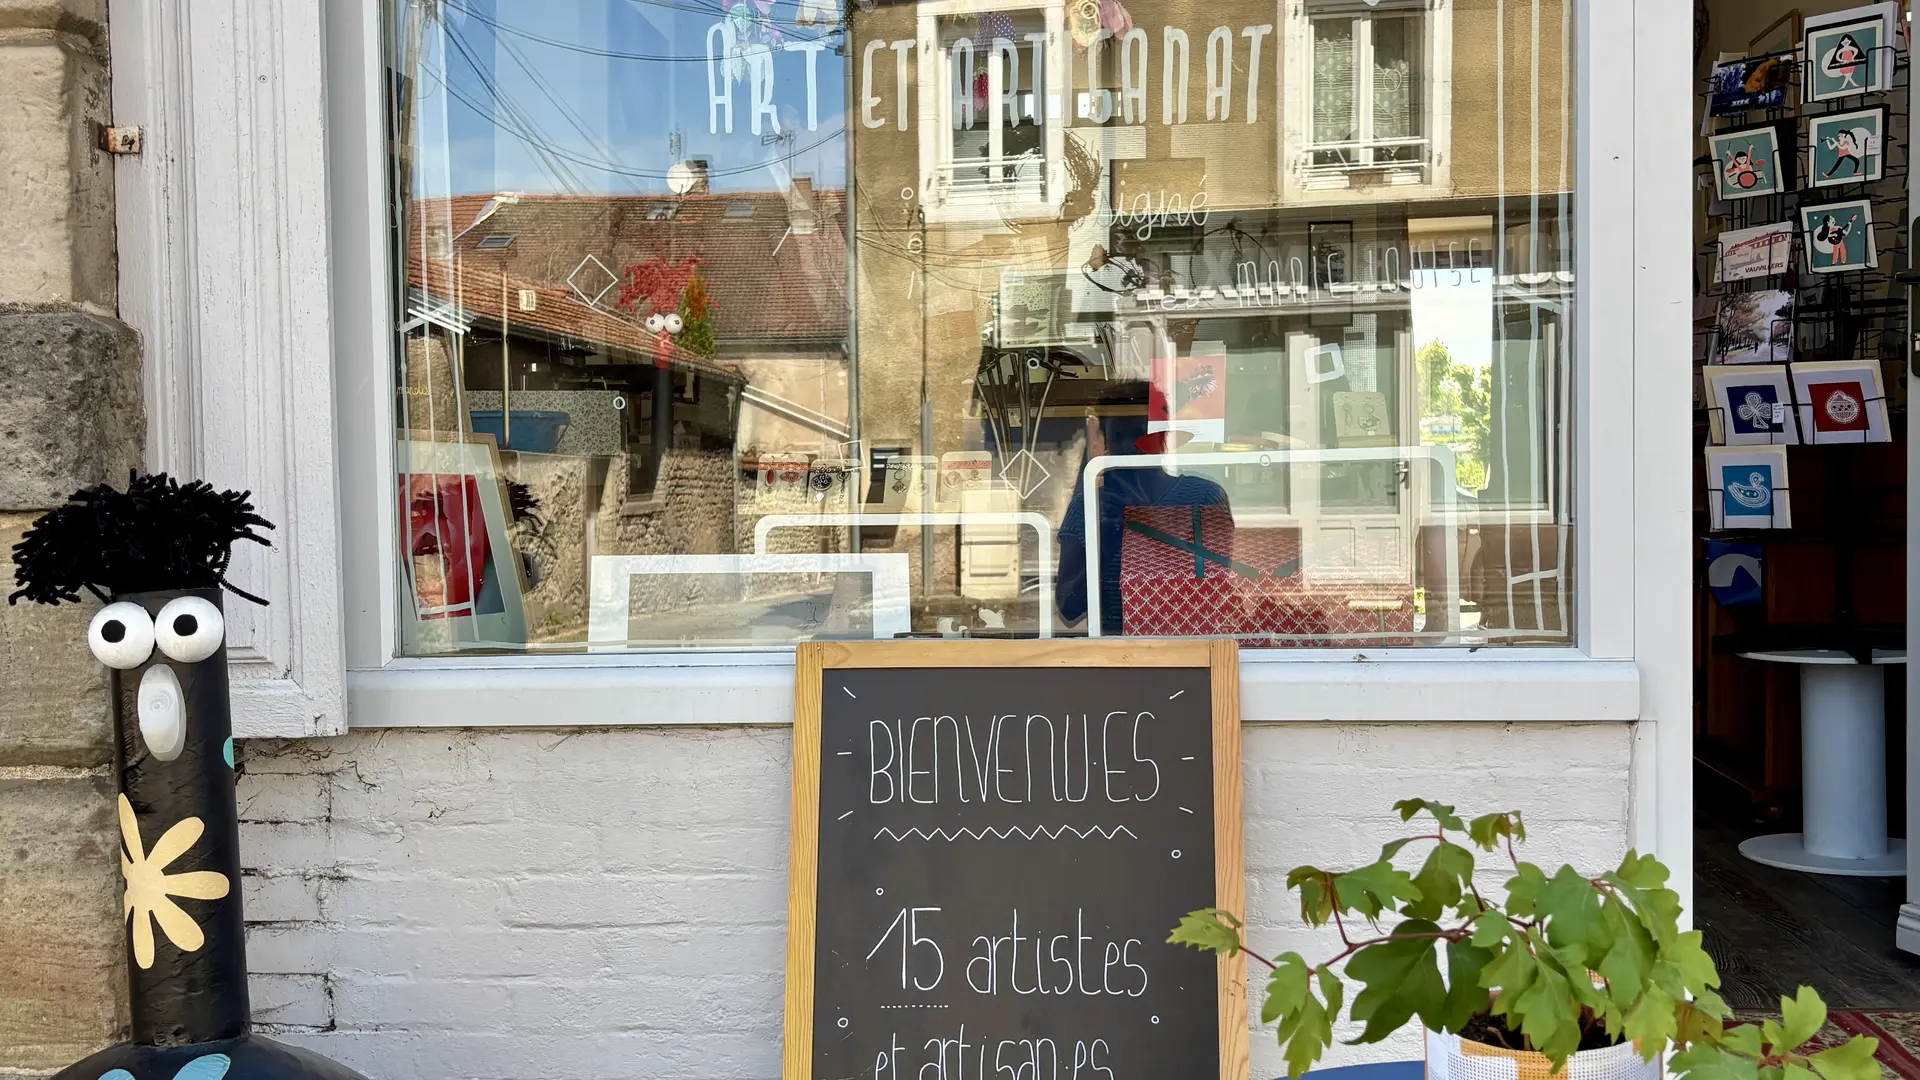 ART ET ARTISANAT
signé
les MARIE LOUISE
VAUVILLERS
BIENVENU·ES
15 artistes
et artisan·es